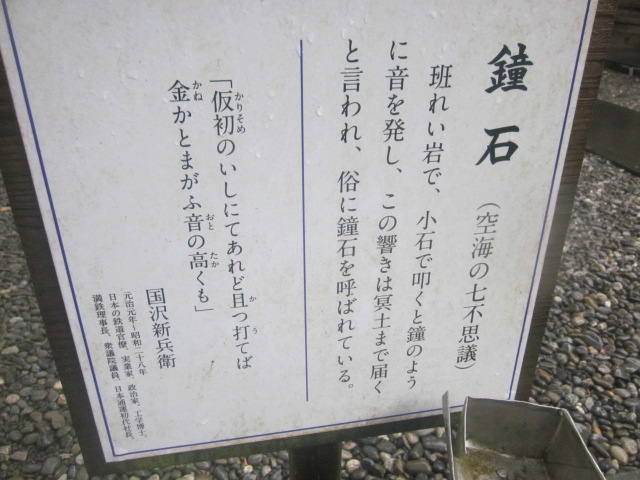 鐘石
(空海の七不思議)
班れい岩で、小石で叩くと鐘のよう
に音を発し、この響きは冥土まで届く
と言われ、俗に鐘石を呼ばれている。
「仮初のいしにてあれど且つ打てば
かりそめ
か
う
金かとまがふ音の高くも」
かね
おと
たか
国沢新兵衛
元治元年~昭和二十八年
日本の鉄道官僚、実業家、政治家、工学博士、
満鉄理事長、衆議院議員、日本通運初代社長、